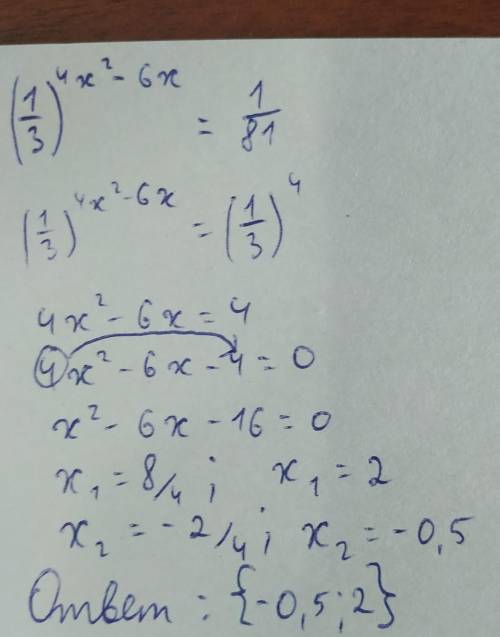 (1/3)^(4x²-6x) = 1/81
(1/3)^(4x²-6x) = (1/3)^4
4x² - 6x = 4
4x² - 6x - 4 = 0
x² - 6x - 16 = 0
x₁ = 8/4 ; x₁ = 2
x₂ = -2/4 ; x₂ = -0,5
Ответ : {-0,5 ; 2}